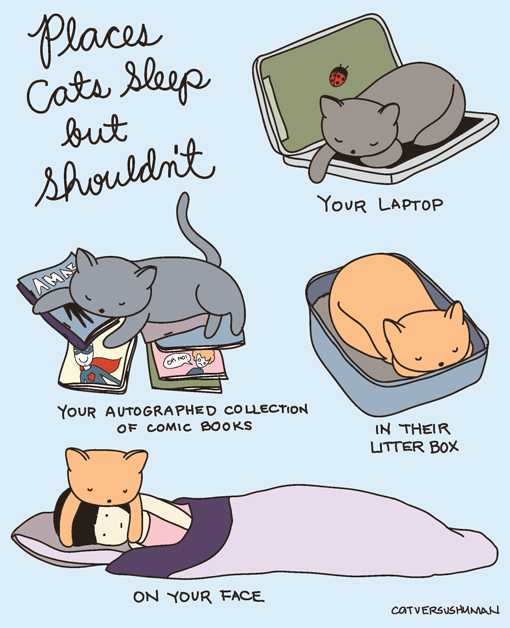 Places
Cats Sleep
but
Shouldn't
YOUR LAPTOP
AMAZ
OH NO!
YOUR AUTOGRAPHED COLLECTION
OF COMIC BOOKS
IN THEIR
LITTER BOX
ON YOUR FACE
CATVERSUSHUMAN